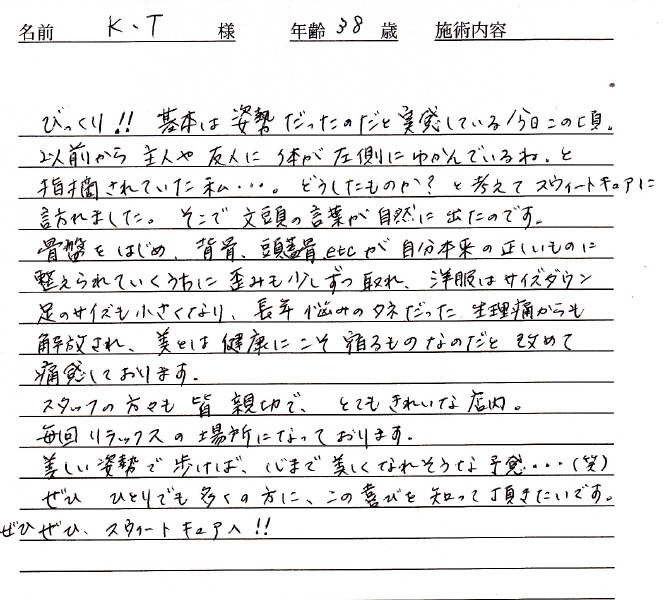 名前 K・T 様 年齢 38 歳 施術内容
びっくり!! 基本は姿勢だったのだと実感している今日この頃。
以前から主人や友人に体が左側にゆがんでいるね。と
指摘されていた私・・・。どうしたものか?と考えてスウィートキュアに
訪れました。そこで文頭の言葉が自然に出たのです。
骨盤をはじめ、背骨、頭蓋骨etcが自分本来の正しいものに
整えられていくうちに歪みも少しずつ取れ、洋服はサイズダウン
足のサイズも小さくなり、長年悩みのタネだった生理痛からも
解放され、美とは健康にこそ宿るものなのだと改めて
痛感しております。
スタッフの方々も皆親切で、とてもきれいな店内。
毎回リラックスの場所になっております。
美しい姿勢で歩けば、心まで美しくなれそうな予感・・・(笑)
ぜひひとりでも多くの方に、この喜びを知って頂きたいです。
ぜひぜひ、スウィートキュアへ!!